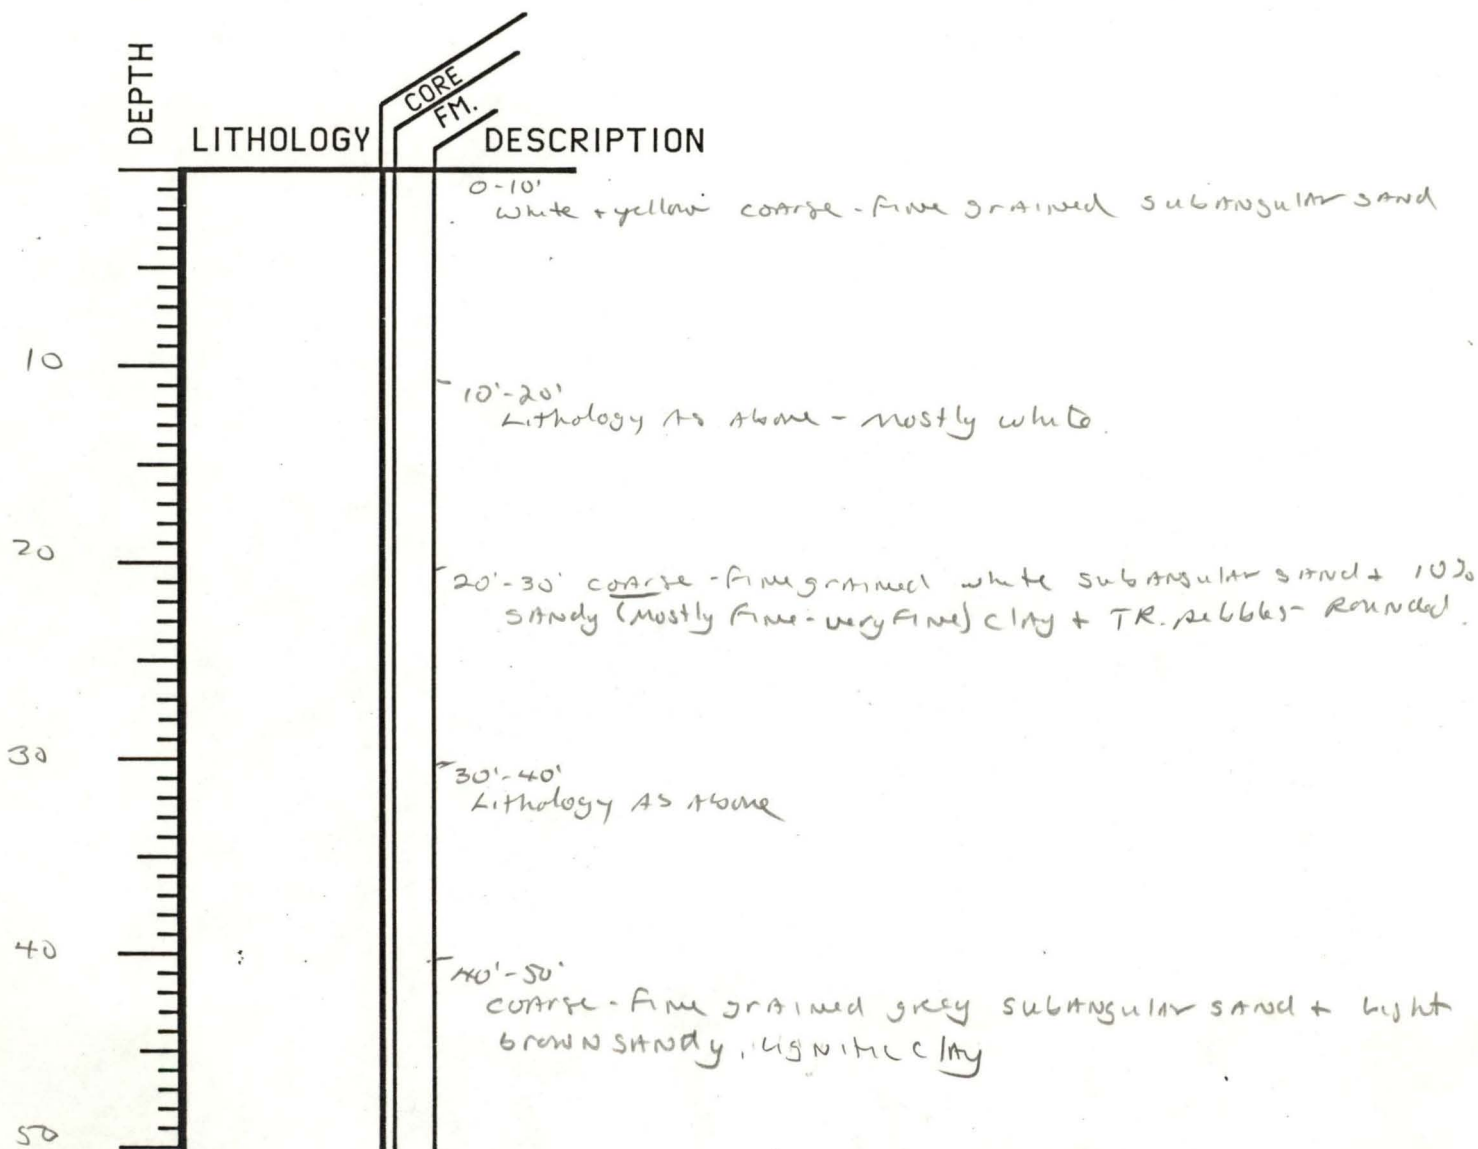 DEPTH
LITHOLOGY
CORE
FM.
DESCRIPTION
0-10'
White + yellow coarse - fine grained subangular sand
10
10'-20'
Lithology As Above - Mostly white.
20
20'-30' coarse - fine grained white subangular sand + 10%
sandy (mostly fine-very fine) clay + TR. pebbles - Rounded.
30
30'-40'
Lithology As Above
40
40'-50'
coarse - fine grained grey subangular sand + light
brown sandy, lignitic clay
50